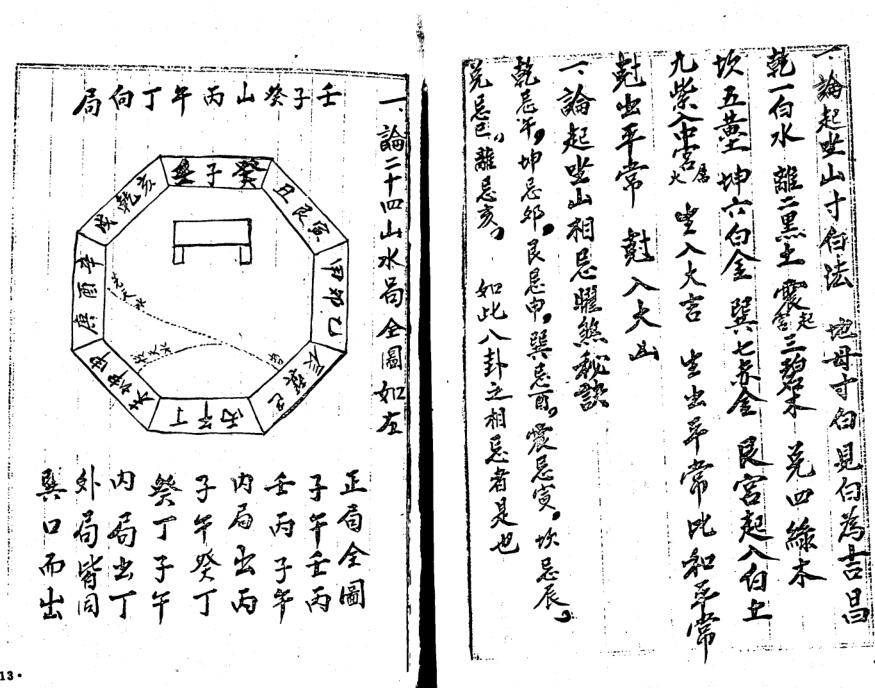 一、論起坐山寸白法　地母寸白見白為吉昌
乾一白水　離二黑土　震宮起三碧木　兌四綠木
坎五黃土　坤六白金　巽七赤金　艮宮起八白土
九紫入中宮屬火　生入大吉　生出平常比和平常
尅出平常　尅入大凶
一、論起坐山相忌曜煞秘訣
乾忌午，坤忌卯，艮忌申，巽忌酉，震忌寅，坎忌辰。
兌忌巳，離忌亥。　如此八卦之相忌者是也
一、論二十四山水局全圖如左
壬子癸山丙午丁向局
壬子癸
丑艮寅
甲卯乙
辰巽巳
丙午丁
未坤申
庚酉辛
戌乾亥
正局全圖
子午壬丙
壬丙子午
內局出丙
子午癸丁
癸丁子午
內局出丁
外局皆同
巽口而出
13·